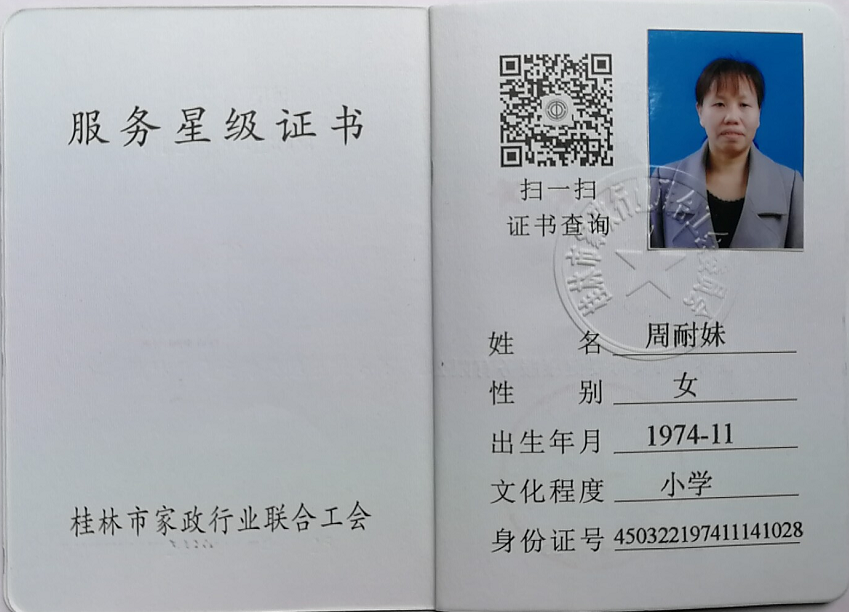 服务星级证书
桂林市家政行业联合工会
扫一扫
证书查询
姓 名 周耐妹
性 别 女
出生年月 1974-11
文化程度 小学
身份证号 450322197411141028